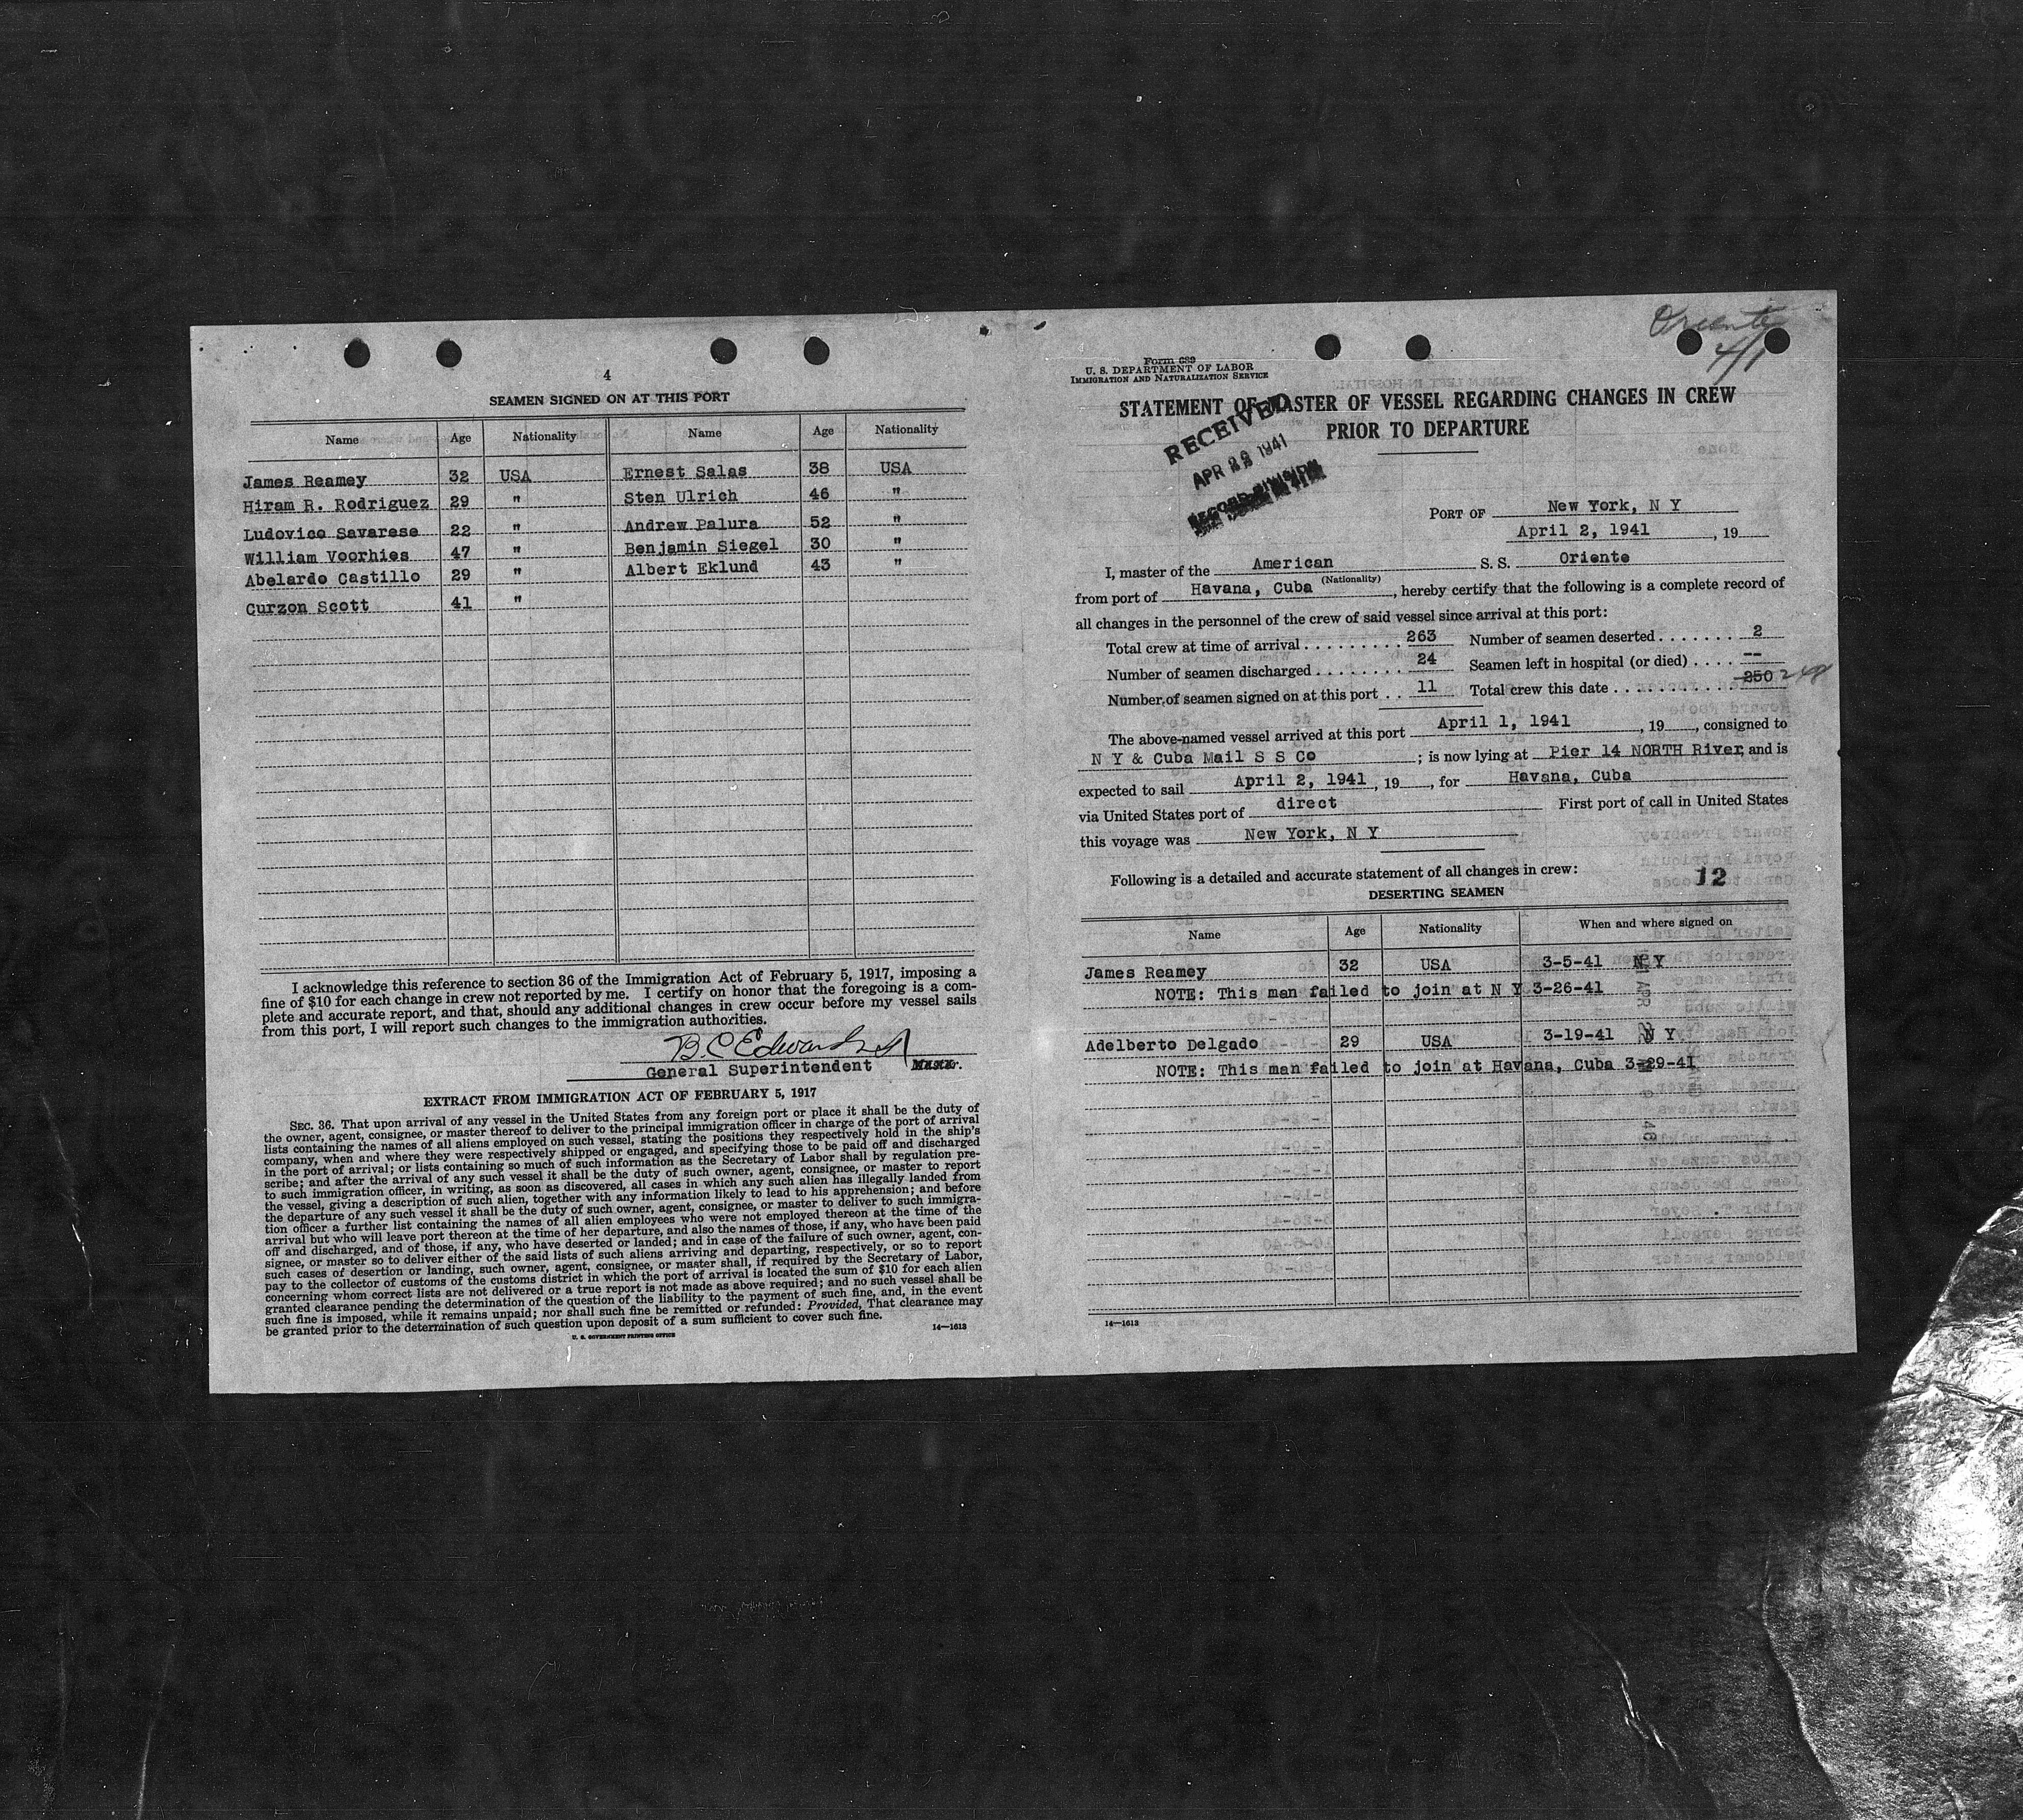 4
SEAMEN SIGNED ON AT THIS PORT
Name Age Nationality Name Age Nationality
James Reamey 32 USA Ernest Salas 38 USA
Hiram R. Rodriguez 29 " Sten Ulrich 46 "
Ludovico Savarese 22 " Andrew Palura 52 "
William Voorhies 47 " Benjamin Siegel 30 "
Abelardo Castillo 29 " Albert Eklund 43 "
Curzon Scott 41 "
I acknowledge this reference to section 36 of the Immigration Act of February 5, 1917, imposing a
fine of $10 for each change in crew not reported by me. I certify on honor that the foregoing is a com-
plete and accurate report, and that, should any additional changes in crew occur before my vessel sails
from this port, I will report such changes to the immigration authorities.
B. C Edwards
General Superintendent Master.
EXTRACT FROM IMMIGRATION ACT OF FEBRUARY 5, 1917
SEC. 36. That upon arrival of any vessel in the United States from any foreign port or place it shall be the duty of
the owner, agent, consignee, or master thereof to deliver to the principal immigration officer in charge of the port of arrival
lists containing the names of all aliens employed on such vessel, stating the positions they respectively hold in the ship's
company, when and where they were respectively shipped or engaged, and specifying those to be paid off and discharged
in the port of arrival; or lists containing so much of such information as the Secretary of Labor shall by regulation pre-
scribe; and after the arrival of any such vessel it shall be the duty of such owner, agent, consignee, or master to report
to such immigration officer, in writing, as soon as discovered, all cases in which any such alien has illegally landed from
the vessel, giving a description of such alien, together with any information likely to lead to his apprehension; and before
the departure of any such vessel it shall be the duty of such owner, agent, consignee, or master to deliver to such immigra-
tion officer a further list containing the names of all alien employees who were not employed thereon at the time of the
arrival but who will leave port thereon at the time of her departure, and also the names of those, if any, who have been paid
off and discharged, and of those, if any, who have deserted or landed; and in case of the failure of such owner, agent, con-
signee, or master so to deliver either of the said lists of such aliens arriving and departing, respectively, or so to report
such cases of desertion or landing, such owner, agent, consignee, or master shall, if required by the Secretary of Labor,
pay to the collector of customs of the customs district in which the port of arrival is located the sum of $10 for each alien
concerning whom correct lists are not delivered or a true report is not made as above required; and no such vessel shall be
granted clearance pending the determination of the question of the liability to the payment of such fine, and, in the event
such fine is imposed, while it remains unpaid; nor shall such fine be remitted or refunded: Provided, That clearance may
be granted prior to the determination of such question upon deposit of a sum sufficient to cover such fine.
U. S. GOVERNMENT PRINTING OFFICE 14—1613
Oriente
4/1
Form 689
U. S. DEPARTMENT OF LABOR
IMMIGRATION AND NATURALIZATION SERVICE
STATEMENT OF MASTER OF VESSEL REGARDING CHANGES IN CREW
PRIOR TO DEPARTURE
RECEIVED
APR 1941
PORT OF New York, N Y
April 2, 1941, 19
I, master of the American S. S. Oriente
(Nationality)
from port of Havana, Cuba, hereby certify that the following is a complete record of
all changes in the personnel of the crew of said vessel since arrival at this port:
Total crew at time of arrival 263 Number of seamen deserted 2
Number of seamen discharged 24 Seamen left in hospital (or died) --
Number of seamen signed on at this port 11 Total crew this date 250 248
The above-named vessel arrived at this port April 1, 1941, 19, consigned to
N Y & Cuba Mail S S Co; is now lying at Pier 14 NORTH River, and is
expected to sail April 2, 1941, 19, for Havana, Cuba
via United States port of direct First port of call in United States
this voyage was New York, N Y
Following is a detailed and accurate statement of all changes in crew: 12
DESERTING SEAMEN
Name Age Nationality When and where signed on
James Reamey 32 USA 3-5-41 N Y
NOTE: This man failed to join at N Y 3-26-41
Adelberto Delgado 29 USA 3-19-41 N Y
NOTE: This man failed to join at Havana, Cuba 3-29-41
14—1613